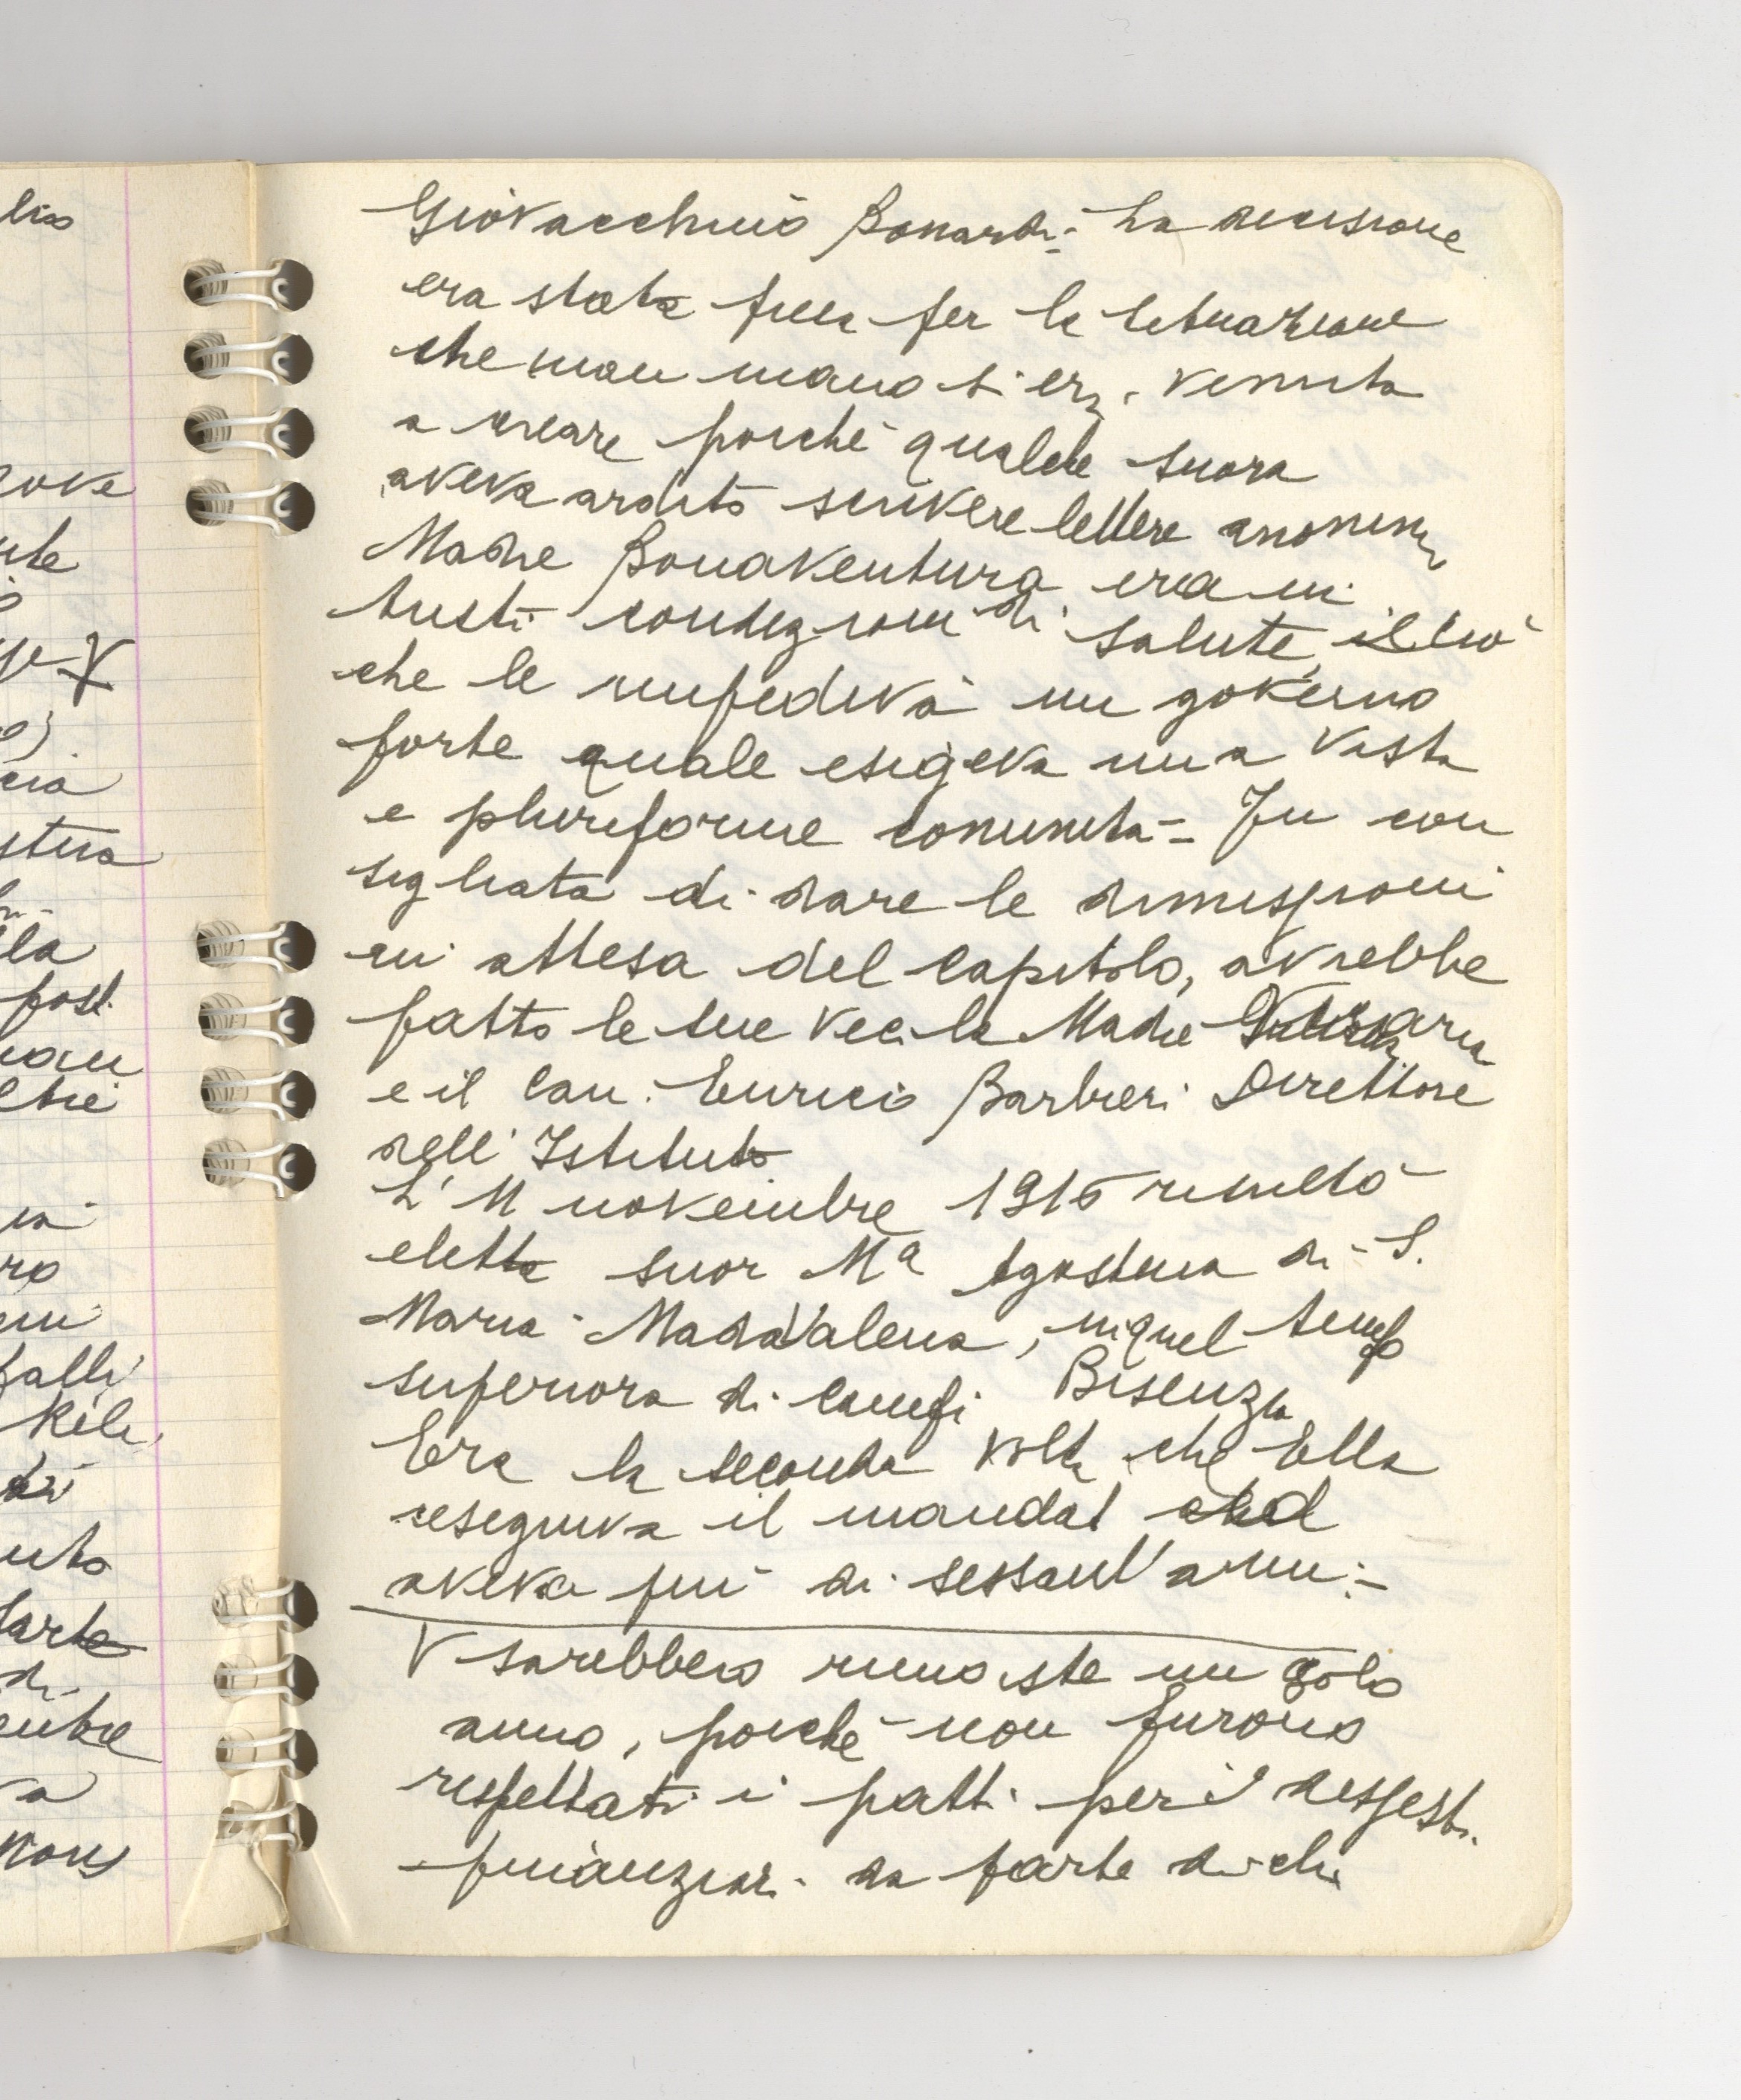 Giovacchino Bonardi = La decisione
era stata presa per la situazione
che man mano si era venuta
a creare poichè qualche suora
aveva ardito scrivere lettere anonime
Madre Bonaventura era in
tristi condizioni di salute, ciò
che le impediva un governo
forte quale esigeva una vasta
e pluriforme comunità = Fu con
sigliata di dare le dimissioni
in attesa del capitolo, avrebbe
fatto le sue veci la Madre Vicaria
e il Can. Enrico Barbieri Direttore
dell'Istituto
L'11 novembre 1915 risultò
eletta suor Mª Agostina di S.
Maria Maddalena, in quel tempo
superiora di Campi Bisenzio
Era la seconda volta che Ella
eseguiva il mandat ed
aveva più di sessant'anni =
V sarebbero rimaste un solo
anno, poichè non furono
rispettati i patti per i dissesti
finanziari da parte di chi